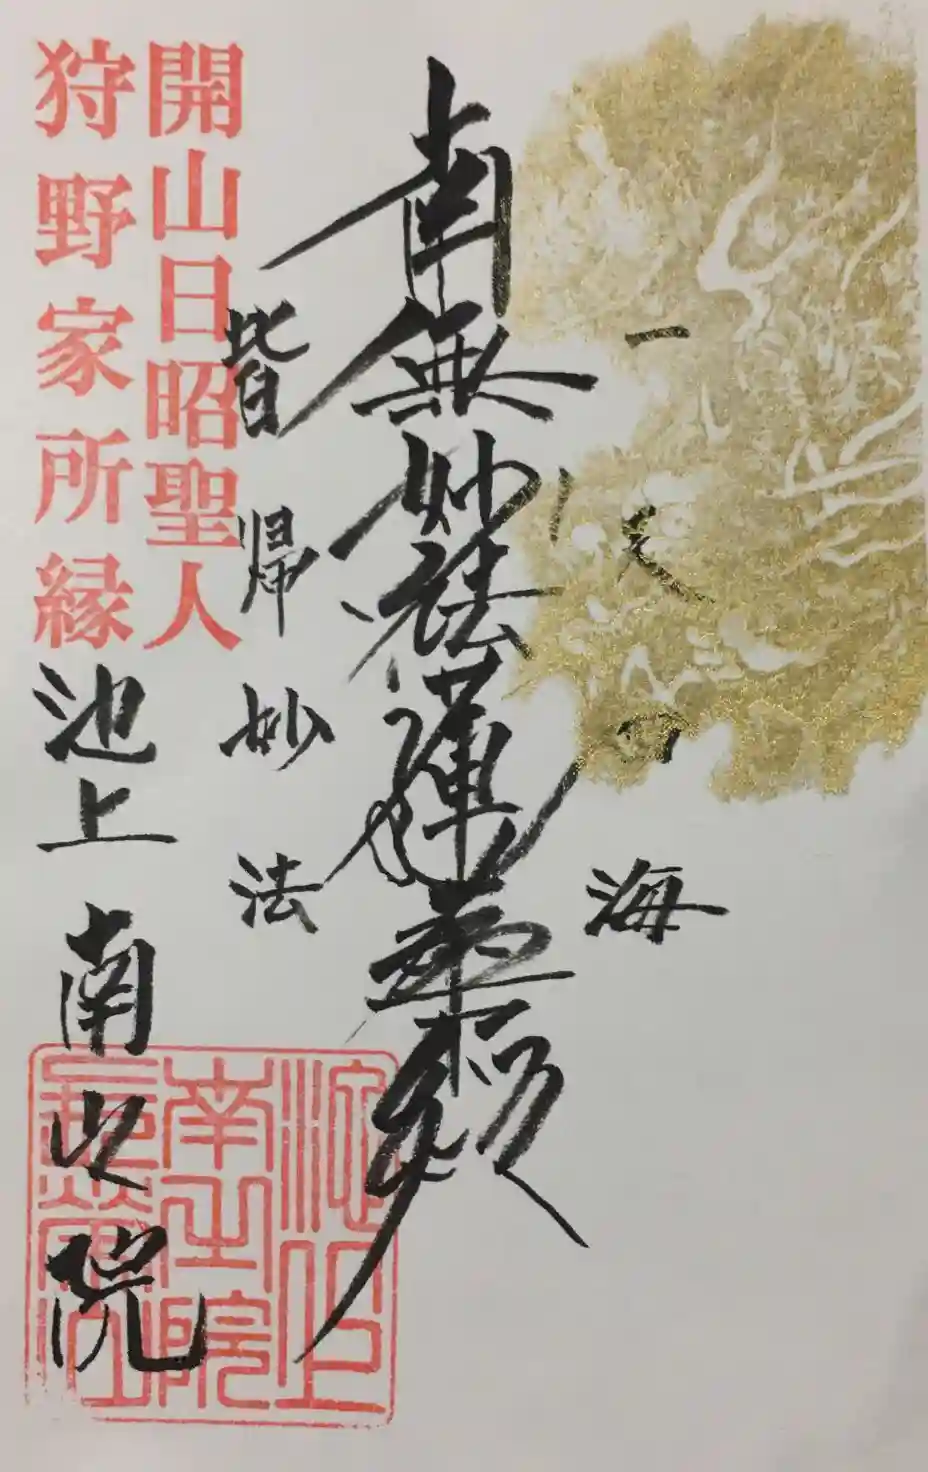 一天四海
南無妙法蓮華経
皆帰妙法
開山日昭聖人
狩野家所縁
池上 南之院
池上
南之院